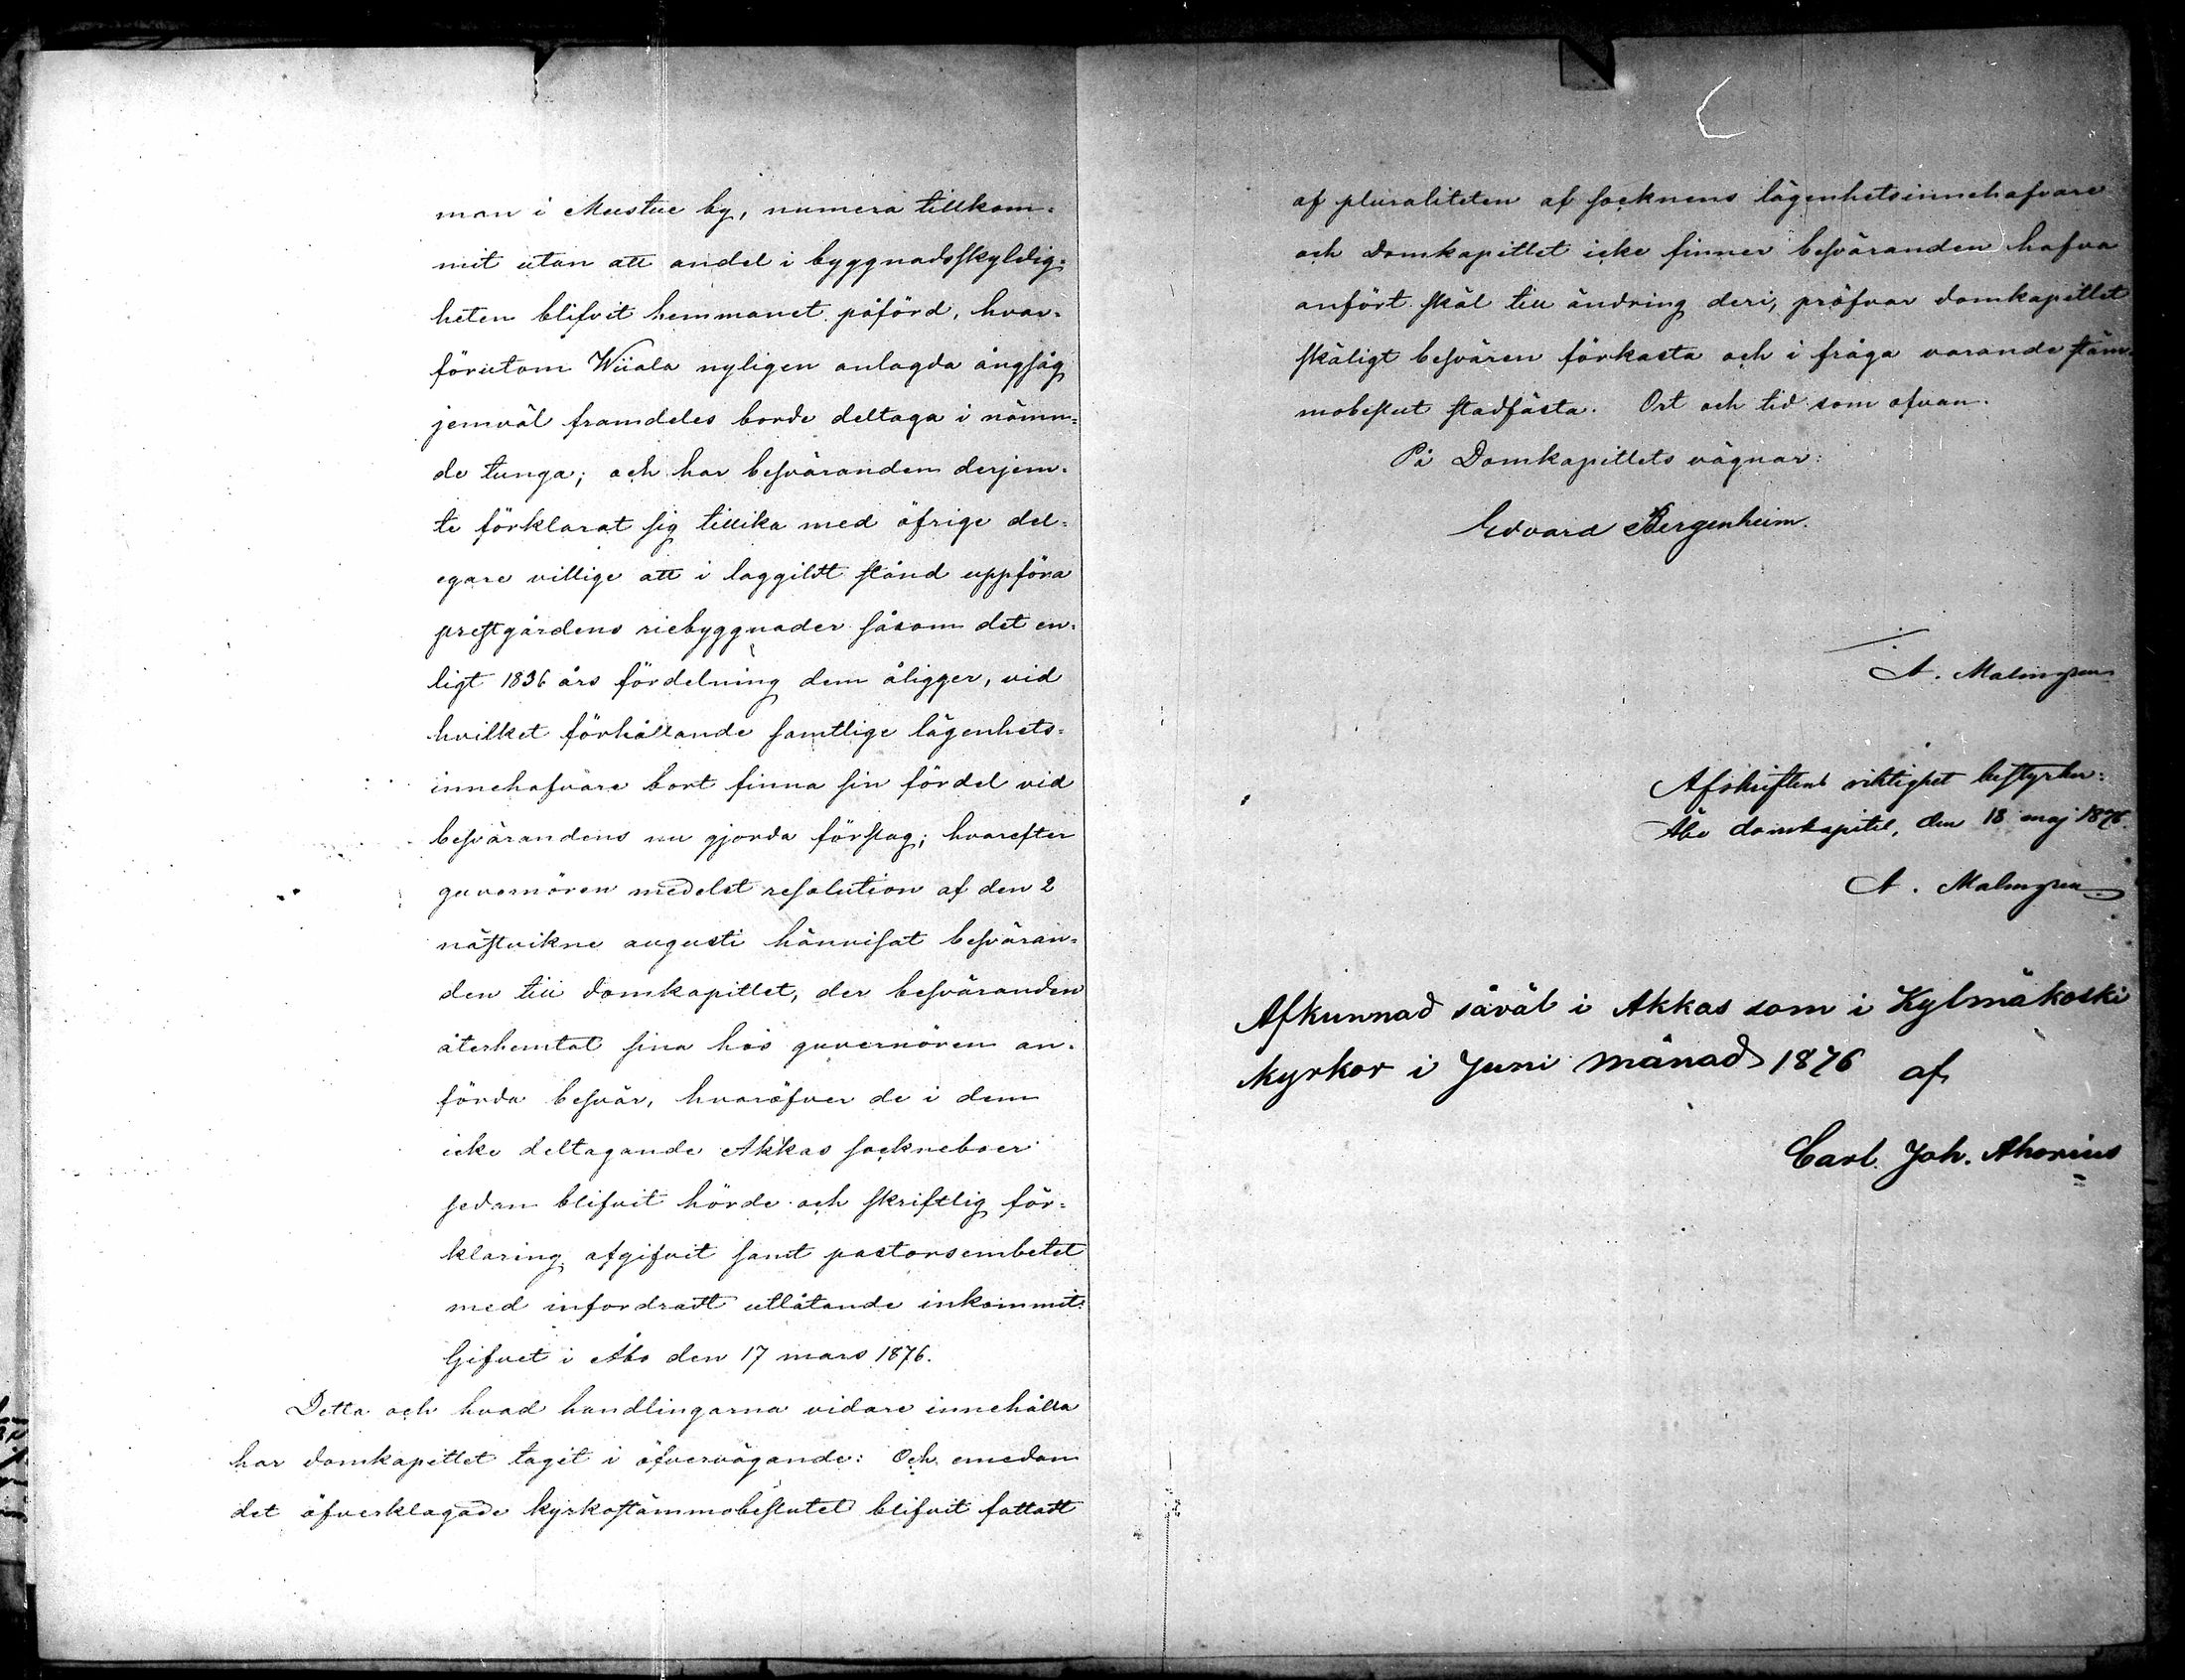 man i Mustue by, numera tillkom-
mit utan att andel i byggnadsskyldig-
heten blifvit hemmanet påförd, hvar-
förutom Wiiala nyligen anlagda ångsåg
jemväl framdeles borde deltaga i nämn-
de tunga; och har besväranden derjem-
te förklarat sig tillika med öfrige del-
egare villige att i laggildt stånd uppföra
prestgårdens riebyggnader såsom det en-
ligt 1836 års fördelning dem åligger, vid
hvilket förhållande samtlige lägenhets-
innehafvare bort finna sin fördel vid
besvärandens nu gjorda förslag; hvarefter
guvernören medelst resolution af den 2
nästvikne augusti hänvisat besväran-
den till domkapitlet, der besväranden
återhemtat sina hos guvernören an-
förda besvär, hvaröfver de i dem
icke deltagande Akkas sockneboer
sedan blifvit hörde och skriftlig för-
klaring afgifvit samt pastorsembetet
med infordradt utlåtande inkommit.
Gifvet i Åbo den 17 mars 1876.
Detta och hvad handlingarna vidare innehålla
har domkapitlet tagit i öfvervägande: Och emedan
det öfverklagade kyrkostämmobeslutet blifvit fattadt
af pluraliteten af socknens lägenhetsinnehafvare
och Domkapitlet icke finner besväranden hafva
anfört skäl till ändring deri, pröfvar domkapitlet
skäligt besvären förkasta och i fråga varande stäm-
mobeslut stadfästa. Ort och tid som ofvan.
På Domkapitlets vägnar:
Edvard Bergenheim.
A. Malmgren
Afskriftens riktighet bestyrker:
Åbo domkapitel, den 18 maj 1876.
A. Malmgren
Afkunnad såväl i Akkas som i Kylmäkoski
kyrkor i Juni månad 1876 af
Carl Joh. Ahonius